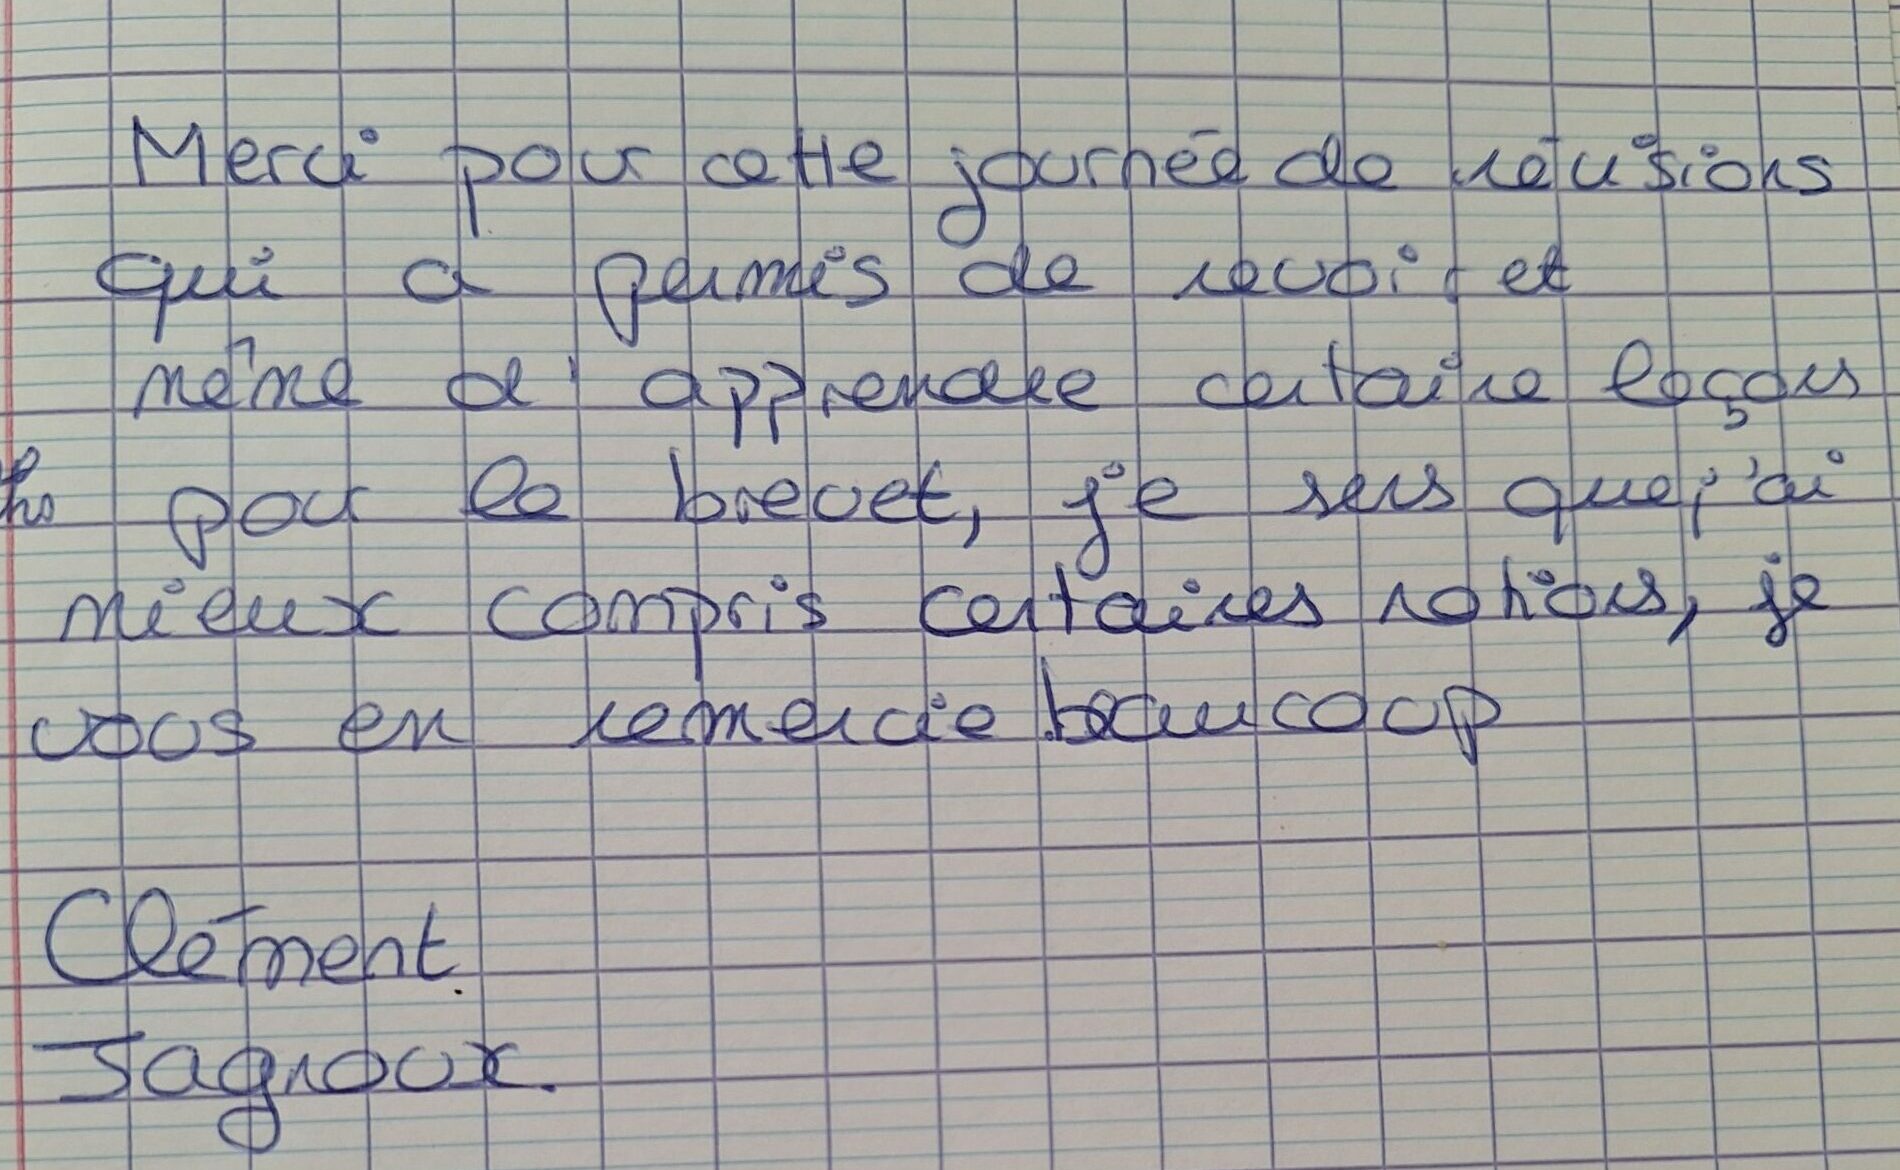 Merci pour cette journée de révisions
qui a permis de revoir et
même d'apprendre certaine leçons
pour le brevet, je sens que j'ai
mieux compris certaines notions, je
vous en remercie beaucoup
Clément.
Jagnoux.